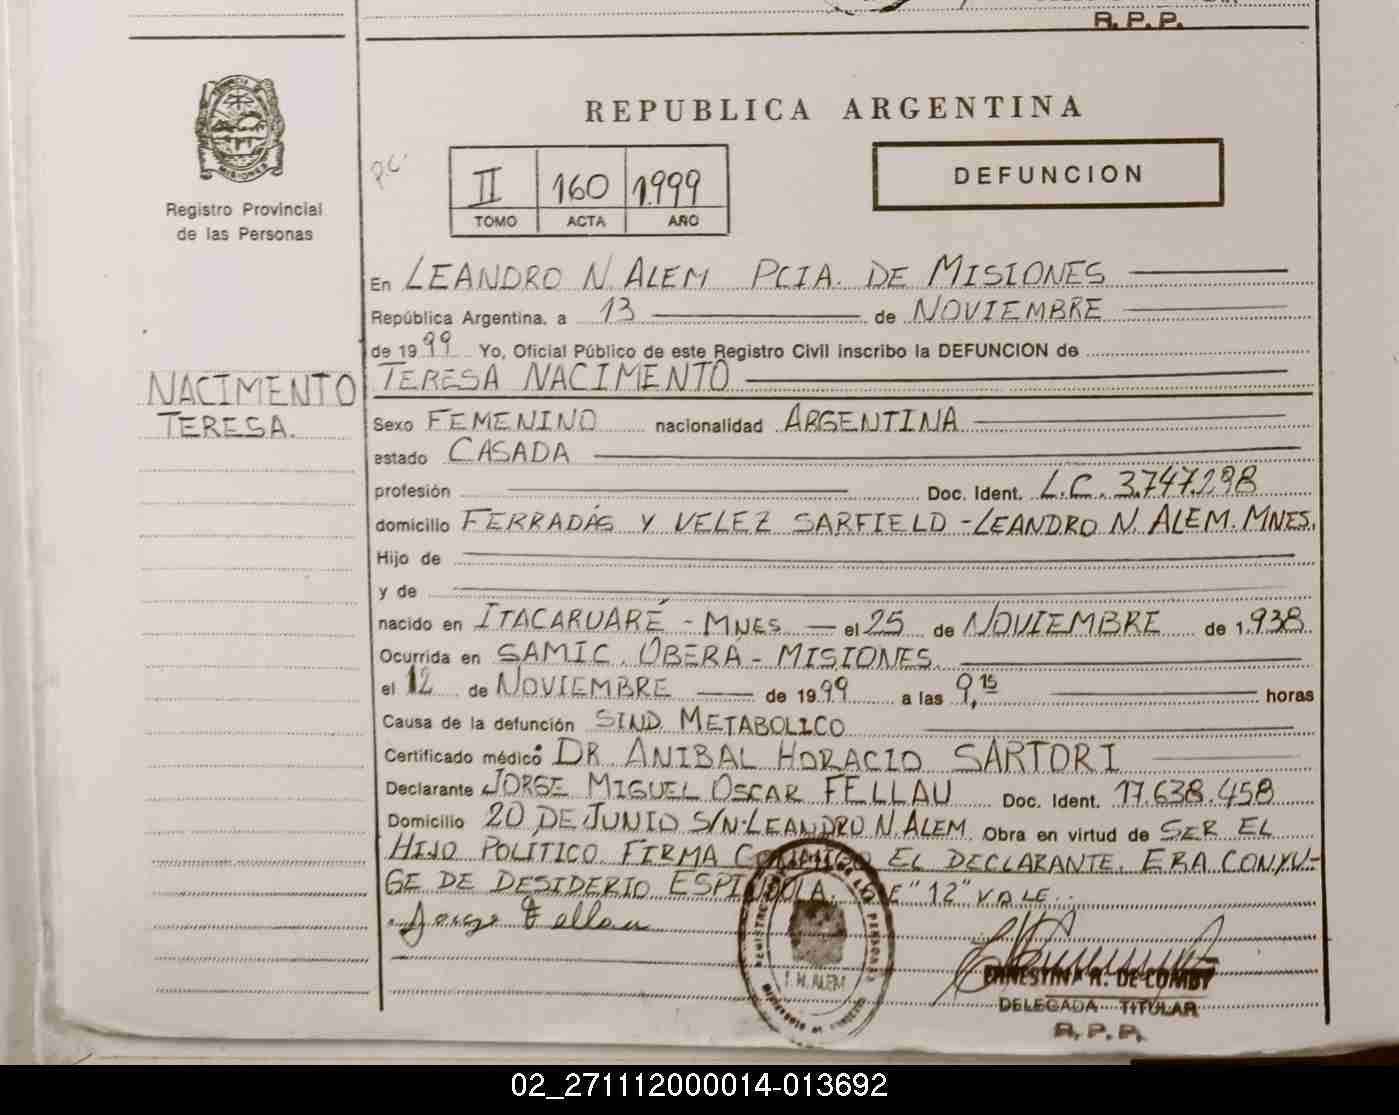 R. P. P.
MISIONES
Registro Provincial
de las Personas
REPUBLICA ARGENTINA
II 160 1.999
TOMO ACTA AÑO
DEFUNCION
En LEANDRO N. ALEM PCIA. DE MISIONES
República Argentina, a 13 de NOVIEMBRE
de 1999 Yo, Oficial Público de este Registro Civil inscribo la DEFUNCION de
TERESA NACIMENTO
NACIMENTO
TERESA.
Sexo FEMENINO nacionalidad ARGENTINA
estado CASADA
profesión Doc. Ident. L.C. 3.747.298
domicilio FERRADÁS Y VELEZ SARFIELD - LEANDRO N. ALEM. MNES.
Hijo de
y de
nacido en ITACARUARÉ - MNES el 25 de NOVIEMBRE de 1.938
Ocurrida en SAMIC. OBERÁ - MISIONES.
el 12 de NOVIEMBRE de 1999 a las 9,15 horas
Causa de la defunción SIND METABOLICO
Certificado médico DR. ANIBAL HORACIO SARTORI
Declarante JORGE MIGUEL OSCAR FELLAU Doc. Ident. 17.638.458
Domicilio 20 DE JUNIO S/N-LEANDRO N. ALEM. Obra en virtud de SER EL
HIJO POLITICO FIRMA CONMIGO EL DECLARANTE. ERA CONYU-
GE DE DESIDERIO ESPINDOLA. "12" VALE.
Jorge Fellau
ERNESTINA R. DE COMBY
DELEGADA TITULAR
R. P. P.
02_271112000014-013692